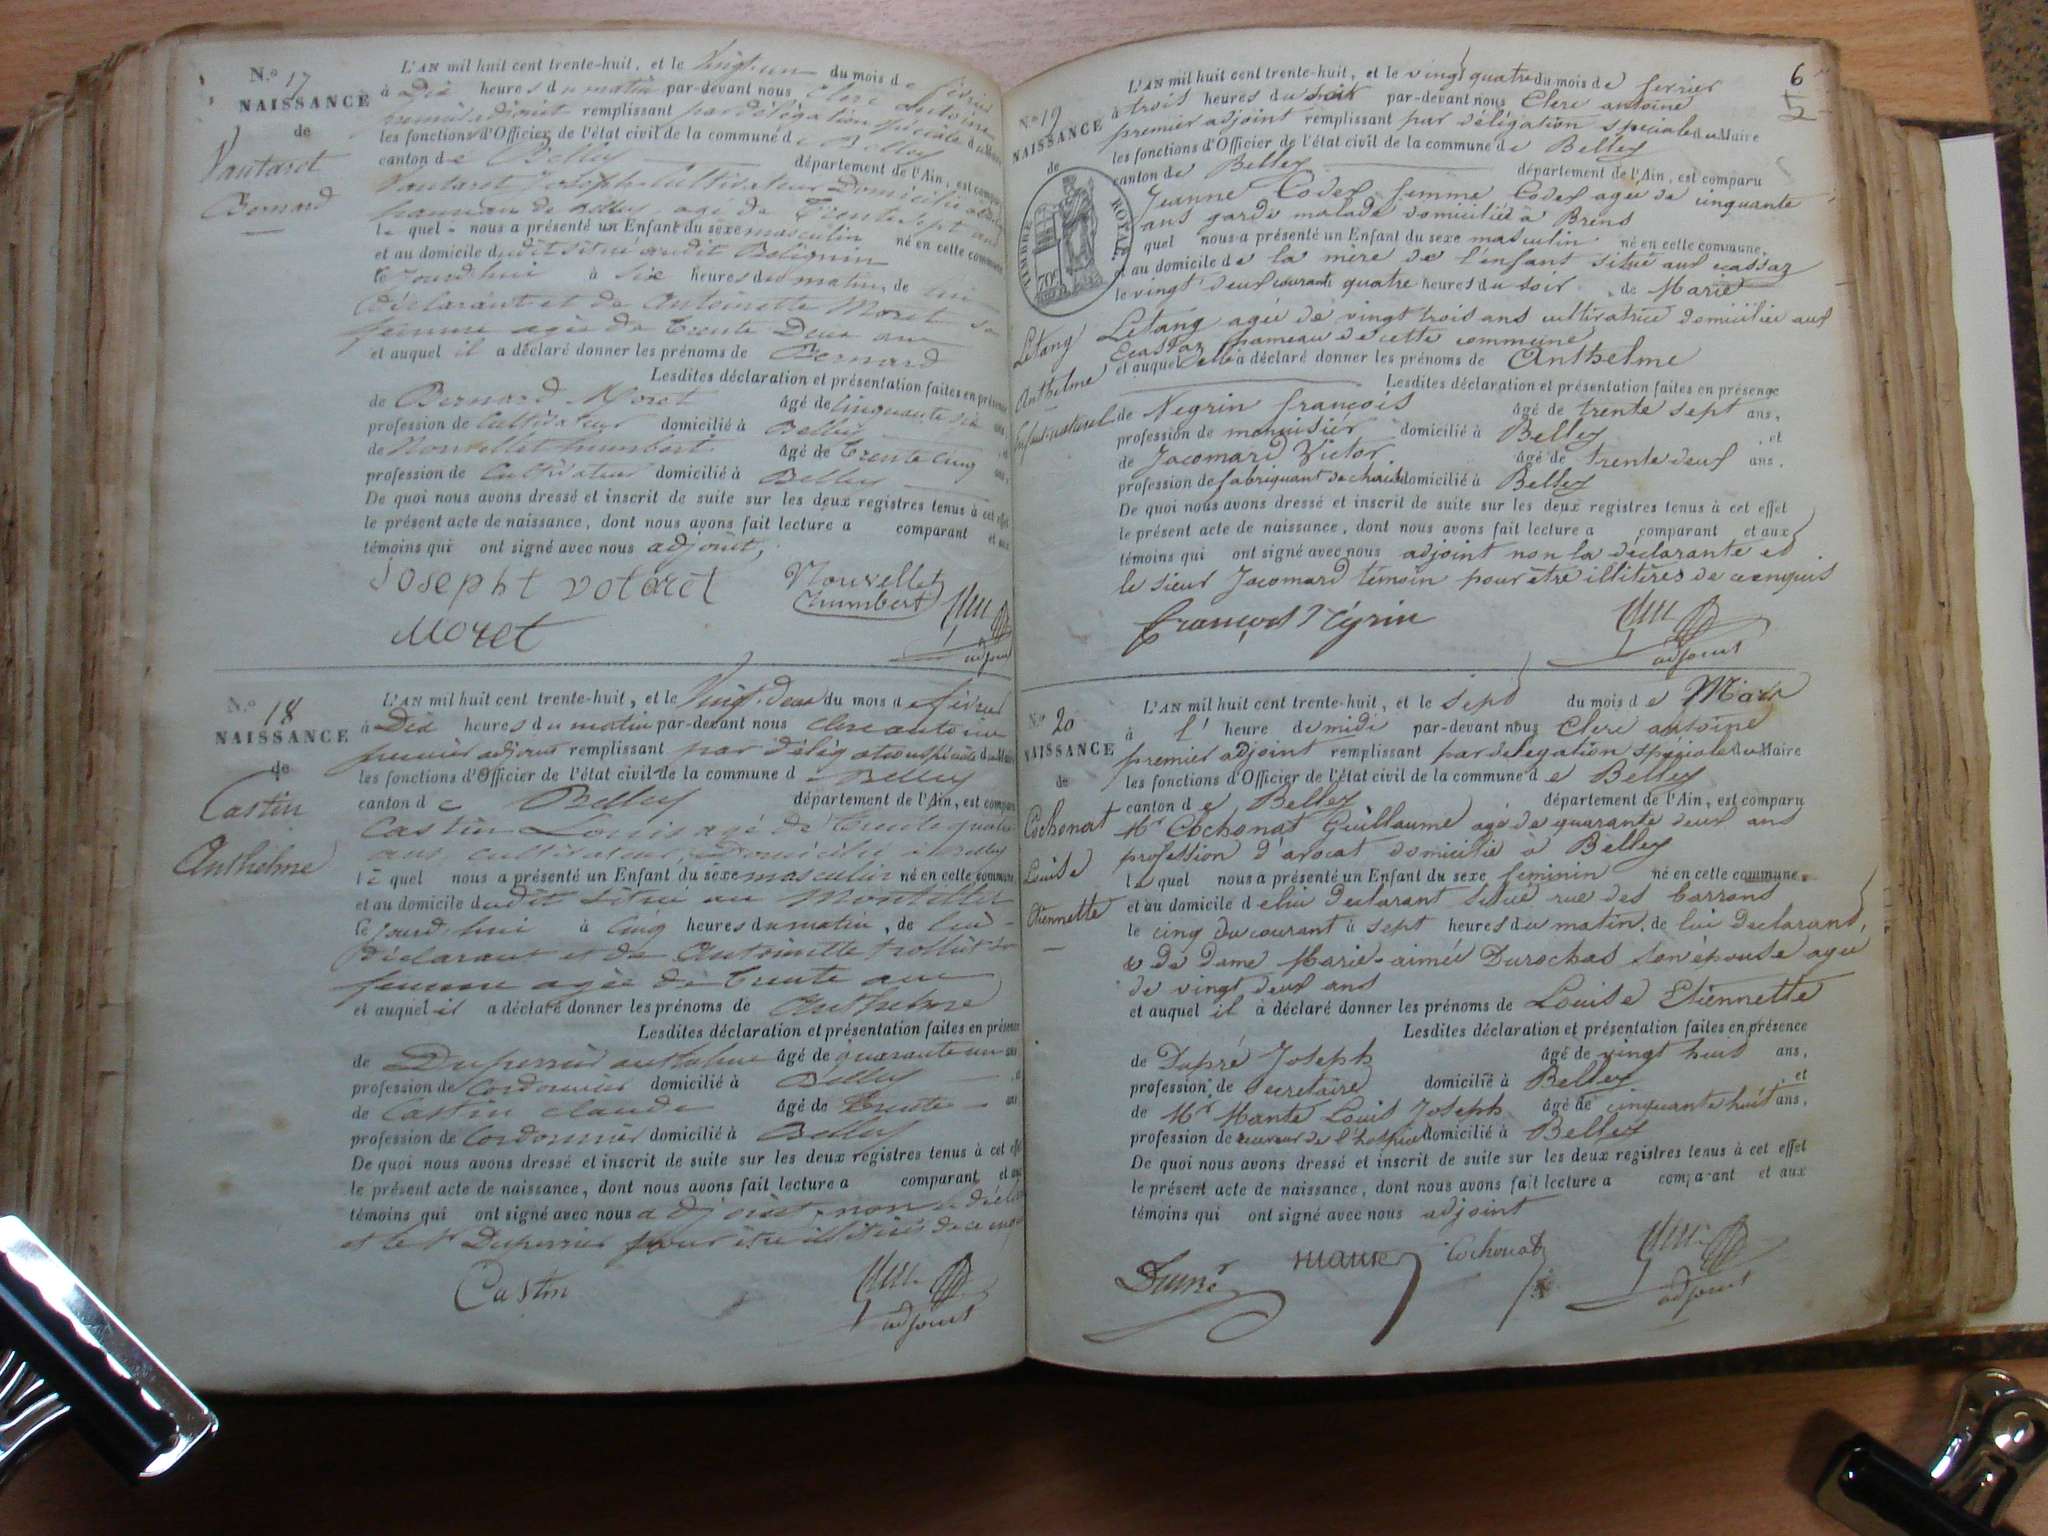 N.º 17
NAISSANCE
de
Vautaret
Bernard
L'AN mil huit cent trente-huit, et le Vingt-un du mois de février
à Dix heures du matin par-devant nous Clerc antoine
premier adjoint remplissant par délégation spéciale du Maire
les fonctions d'Officier de l'état civil de la commune de Belley
canton de Belley département de l'Ain, est comparu
Vautaret Joseph Cultivateur Domicilié
hameau de Belley, agé de Trente sept ans
le quel nous a présenté un Enfant du sexe masculin né en cette commune
et au domicile dudit situé audit Bélignin
le jourd'hui à six heures du matin, de lui
Déclarant et de Antoinette Moret sa
femme agée de trente Deux ans
et auquel il a déclaré donner les prénoms de Bernard
Lesdites déclaration et présentation faites en présence
de Bernard Moret âgé de Cinquante six ans
profession de Cultivateur domicilié à Belley
de Nouvellet humbert âgé de trente cinq ans
profession de Cultivateur domicilié à Belley
De quoi nous avons dressé et inscrit de suite sur les deux registres tenus à cet effet
le présent acte de naissance, dont nous avons fait lecture a comparant et aux
témoins qui ont signé avec nous adjoint,
Josepht votaret Nouvellet
humbert
Moret
adjoint
N.º 18
NAISSANCE
de
Castin
Anthelme
L'AN mil huit cent trente-huit, et le Vingt-Deux du mois de février
à Dix heures du matin par-devant nous Clerc antoine
premier adjoint remplissant par délégation spéciale du Maire
les fonctions d'Officier de l'état civil de la commune d Belley
canton de Belley département de l'Ain, est comparu
Castin Louis agé de trente quatre
ans, cultivateur, Domicilié à Belley
le quel nous a présenté un Enfant du sexe masculin né en cette commune
et au domicile dudit situé au Montillet
le jourd'hui à Cinq heures du matin, de lui
Déclarant et de Antoinette trolliet sa
femme agée de trente ans
et auquel il a déclaré donner les prénoms de Anthelme
Lesdites déclaration et présentation faites en présence
de Duperrier anthelme âgé de quarante un ans
profession de Cordonnier domicilié à Belley et
de Castin claude âgé de trente ans
profession de Cordonnier domicilié à Belley
De quoi nous avons dressé et inscrit de suite sur les deux registres tenus à cet effet
le présent acte de naissance, dont nous avons fait lecture a comparant et aux
témoins qui ont signé avec nous adjoint, non le
et le Sr Duperrier pour être illitérés de ce
Castin
adjoint
6
5
N.º 19
NAISSANCE
de
TIMBRE ROYAL
70c
Letang
Anthelme
enfant naturel
L'AN mil huit cent trente-huit, et le vingt quatre du mois de fevrier
à trois heures du soir par-devant nous Clerc antoine
premier adjoint remplissant par délégation spéciale du Maire
les fonctions d'Officier de l'état civil de la commune de Belley
canton de Belley département de l'Ain, est comparu
Jeanne Codex femme Codex agée de cinquante
ans garde malade domiciliée à Brens
quel nous a présenté un Enfant du sexe masculin né en cette commune,
et au domicile de la mère de l'enfant situé aux ecassaz
le vingt deux courant quatre heures du soir de Marie
Letang agée de vingt trois ans cultivatrice domiciliée aux
Ecassaz hameau de cette commune
et auquel elle a déclaré donner les prénoms de Anthelme
Lesdites déclaration et présentation faites en présence
de Negrin françois âgé de trente sept ans,
profession de menuisier domicilié à Belley et
de Jacomard Victor âgé de trente deux ans,
profession de fabriquant de domicilié à Belley
De quoi nous avons dressé et inscrit de suite sur les deux registres tenus à cet effet
le présent acte de naissance, dont nous avons fait lecture a comparant et aux
témoins qui ont signé avec nous adjoint non la déclarante et
le sieur Jacomard témoin pour être illitérés de ce enquis
François Négrin
adjoint
N.º 20
NAISSANCE
de
Cochonat
Louise
Etiennette
L'AN mil huit cent trente-huit, et le sept du mois de Mars
à l' heure de midi par-devant nous Clerc antoine
premier adjoint remplissant par délégation spéciale du Maire
les fonctions d'Officier de l'état civil de la commune de Belley
canton de Belley département de l'Ain, est comparu
Mr Cochonat Guillaume agé de quarante deux ans
profession d'avocat domicilié à Belley
le quel nous a présenté un Enfant du sexe feminin né en cette commune
et au domicile de lui Déclarant situé rue des barrons
le cinq du courant à sept heures du matin, de lui Declarant,
& de Dame Marie-aimée Durochas son épouse agée
de vingt deux ans
et auquel il a déclaré donner les prénoms de Louise Etiennette
Lesdites déclaration et présentation faites en présence
de Dupré Joseph âgé de vingt huit ans,
profession de secretaire domicilié à Belley et
de Mr Mante Louis Joseph âgé de cinquante huit ans,
profession de receveur de l'hospice domicilié à Belley
De quoi nous avons dressé et inscrit de suite sur les deux registres tenus à cet effet
le présent acte de naissance, dont nous avons fait lecture a comparant et aux
témoins qui ont signé avec nous adjoint
Dupré Mante Cochonat
adjoint